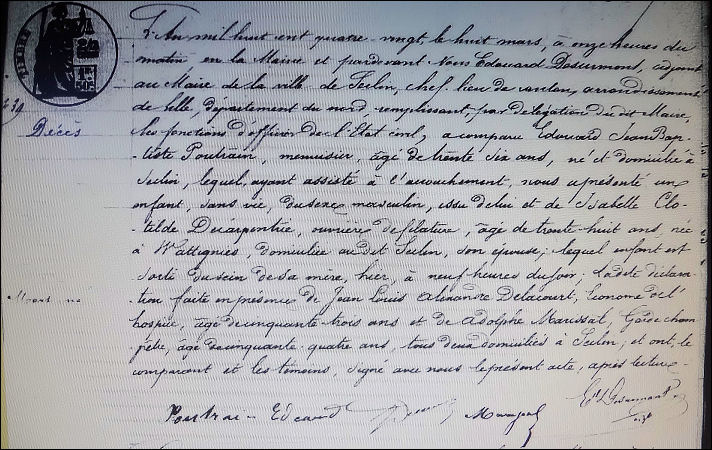 L'An mil huit cent quatre-vingt, le huit mars, à onze heures du
matin, en la Mairie et pardevant Nous Edouard Desurmont, adjoint
au Maire de la ville de Seclin, chef-lieu de canton, arrondissement
de Lille, département du nord remplissant, par délégation du dit Maire,
Décès
les fonctions d'officier de l'Etat civil, a comparu Edouard Jean Bap-
-tiste Poutrain, menuisier, âgé de trente six ans, né et domicilié à
Seclin, lequel, ayant assisté à l'accouchement, nous a présenté un
enfant, sans vie, du sexe masculin, issu de lui et de Isabelle Clo-
-tilde Decarpentrie, ouvrière de filature, âgée de trente-huit ans, née
à Wattignies, domiciliée au dit Seclin, son épouse; lequel enfant est
sorti du sein de sa mère, hier, à neuf heures du soir; ladite déclara-
Mort né
-tion faite en présence de Jean Louis Alexandre Delacourt, Econome de l'
hospice, âgé de cinquante-trois ans et de Adolphe Marissal, Garde cham-
-pêtre, âgé de cinquante-quatre ans, tous deux domiciliés à Seclin; et ont, le
comparant et les témoins, signé avec nous le présent acte, après lecture.
Poutrai- Edouard